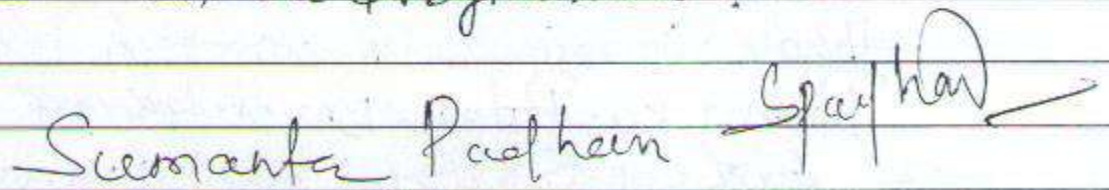 Sumanta Padhan SPadhan